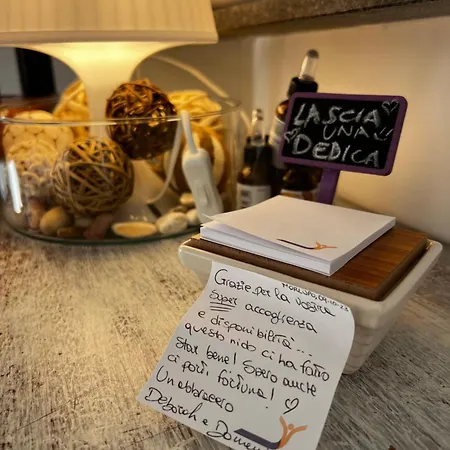 LASCIA
UNA
DEDICA
Grazie per la vostra
Super accoglienza
e disponibilità...
questo nido ci ha fatto
star bene! Spero anche
ci porti fortuna!
Un abbraccio
Deborah e Domen